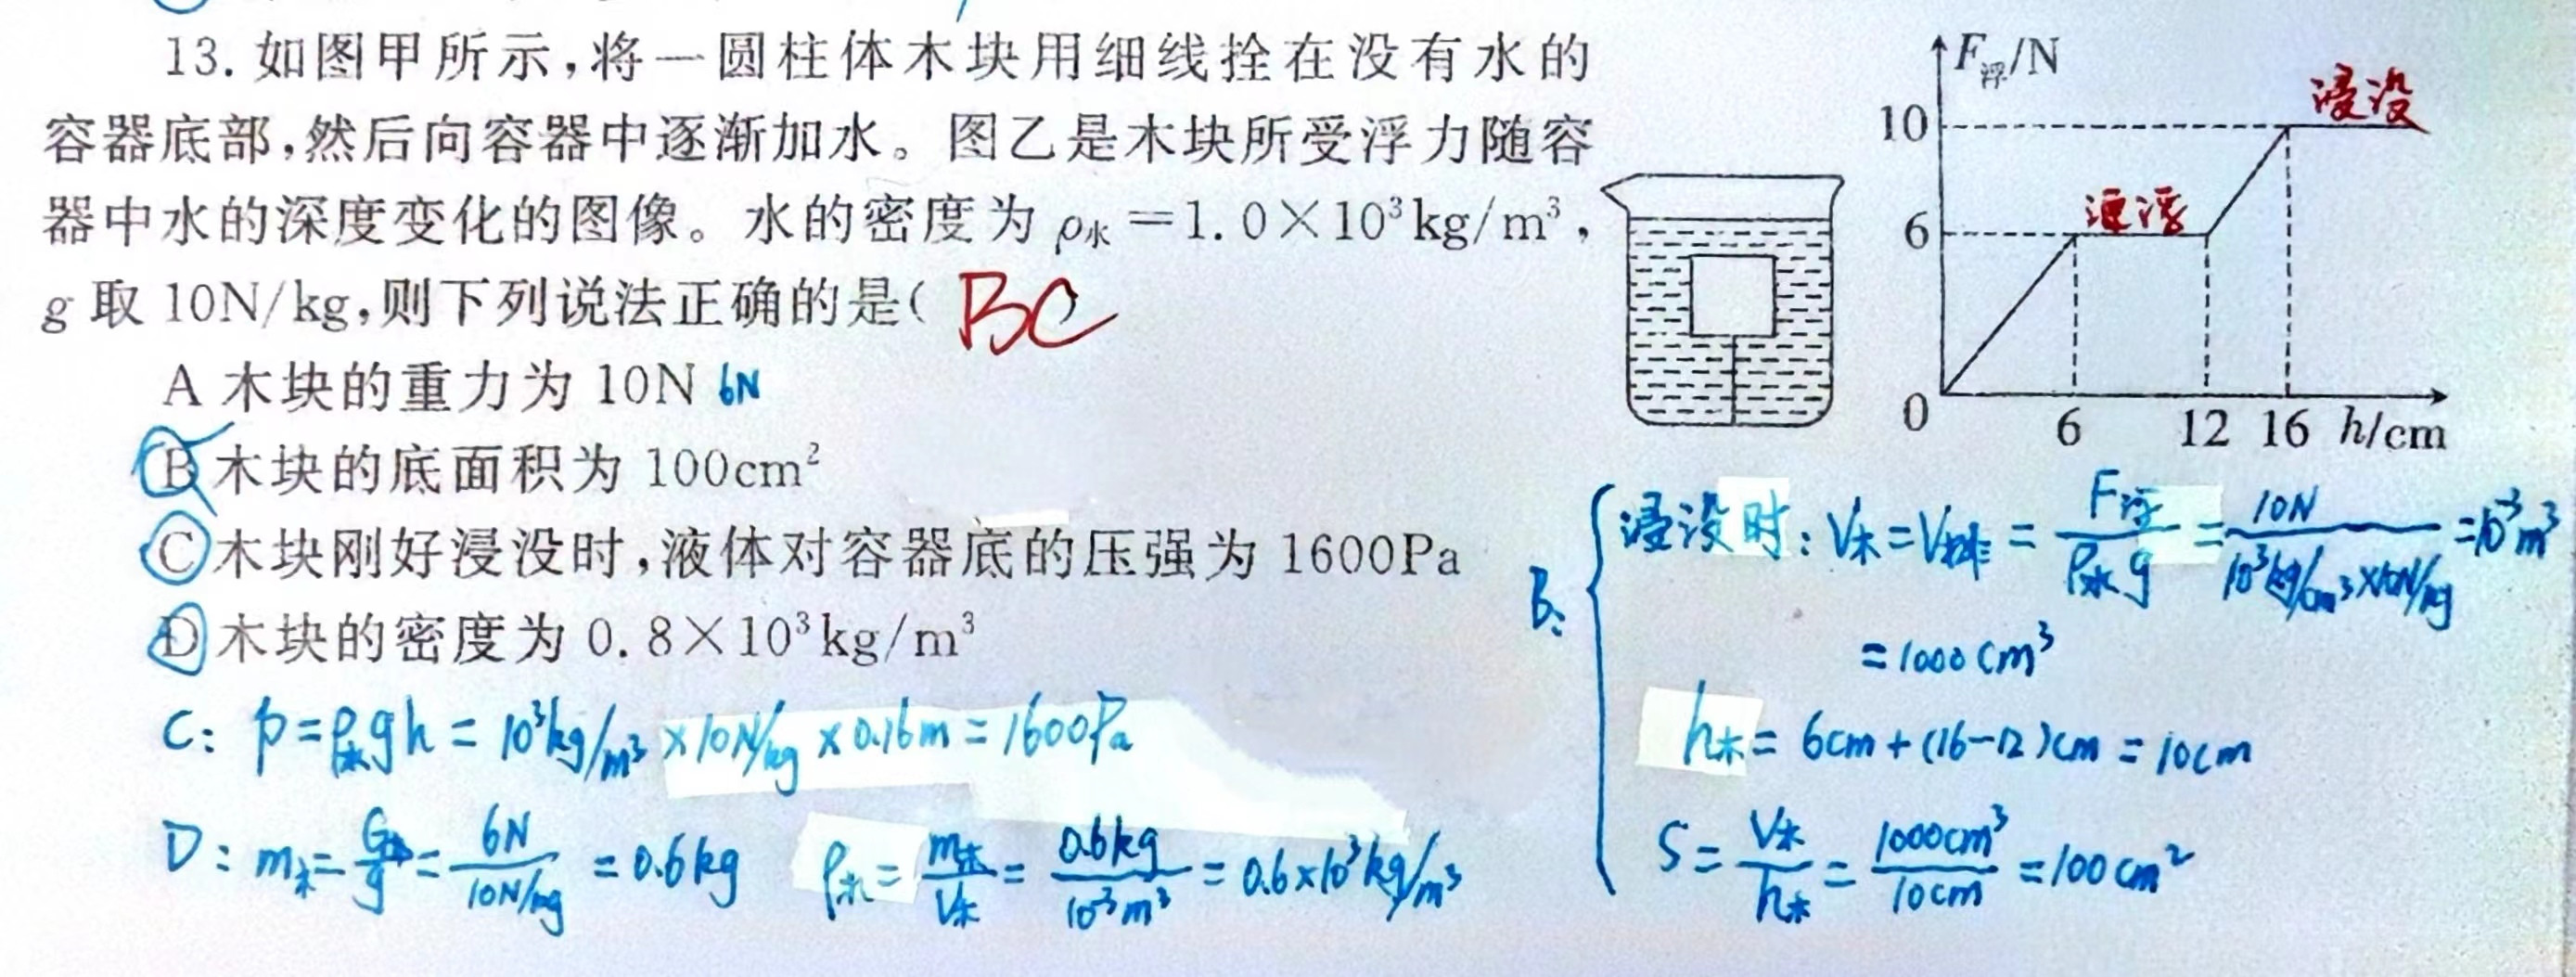 13. 如图甲所示,将一圆柱体木块用细线拴在没有水的
容器底部,然后向容器中逐渐加水。图乙是木块所受浮力随容
器中水的深度变化的图像。水的密度为 ρ水=1.0×10³kg/m³,
g 取 10N/kg,则下列说法正确的是( BC )
A 木块的重力为 10N 6N
B 木块的底面积为 100cm²
C 木块刚好浸没时,液体对容器底的压强为 1600Pa
D 木块的密度为 0.8×10³kg/m³
C: p=ρ水gh=10³kg/m³×10N/kg×0.16m=1600Pa
D: m木=G木/g=6N/10N/kg=0.6kg ρ木=m木/V木=0.6kg/10⁻³m³=0.6×10³kg/m³
F浮/N
10
浸没
6
漂浮
0
6 12 16 h/cm
B:
浸没时:V木=V排=F浮/ρ水g=10N/10³kg/m³×10N/kg=10⁻³m³
=1000cm³
h木=6cm+(16-12)cm=10cm
S=V木/h木=1000cm³/10cm=100cm²